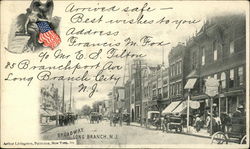 Arrived safe -
Best wishes to you
Address
Francis M. Fox
c/o Mrs. E. S. Tilton
85 Branchport Ave
Long Branch City
N.J.
BROADWAY
LONG BRANCH, N.J.
Arthur Livingston, Publisher, New York.